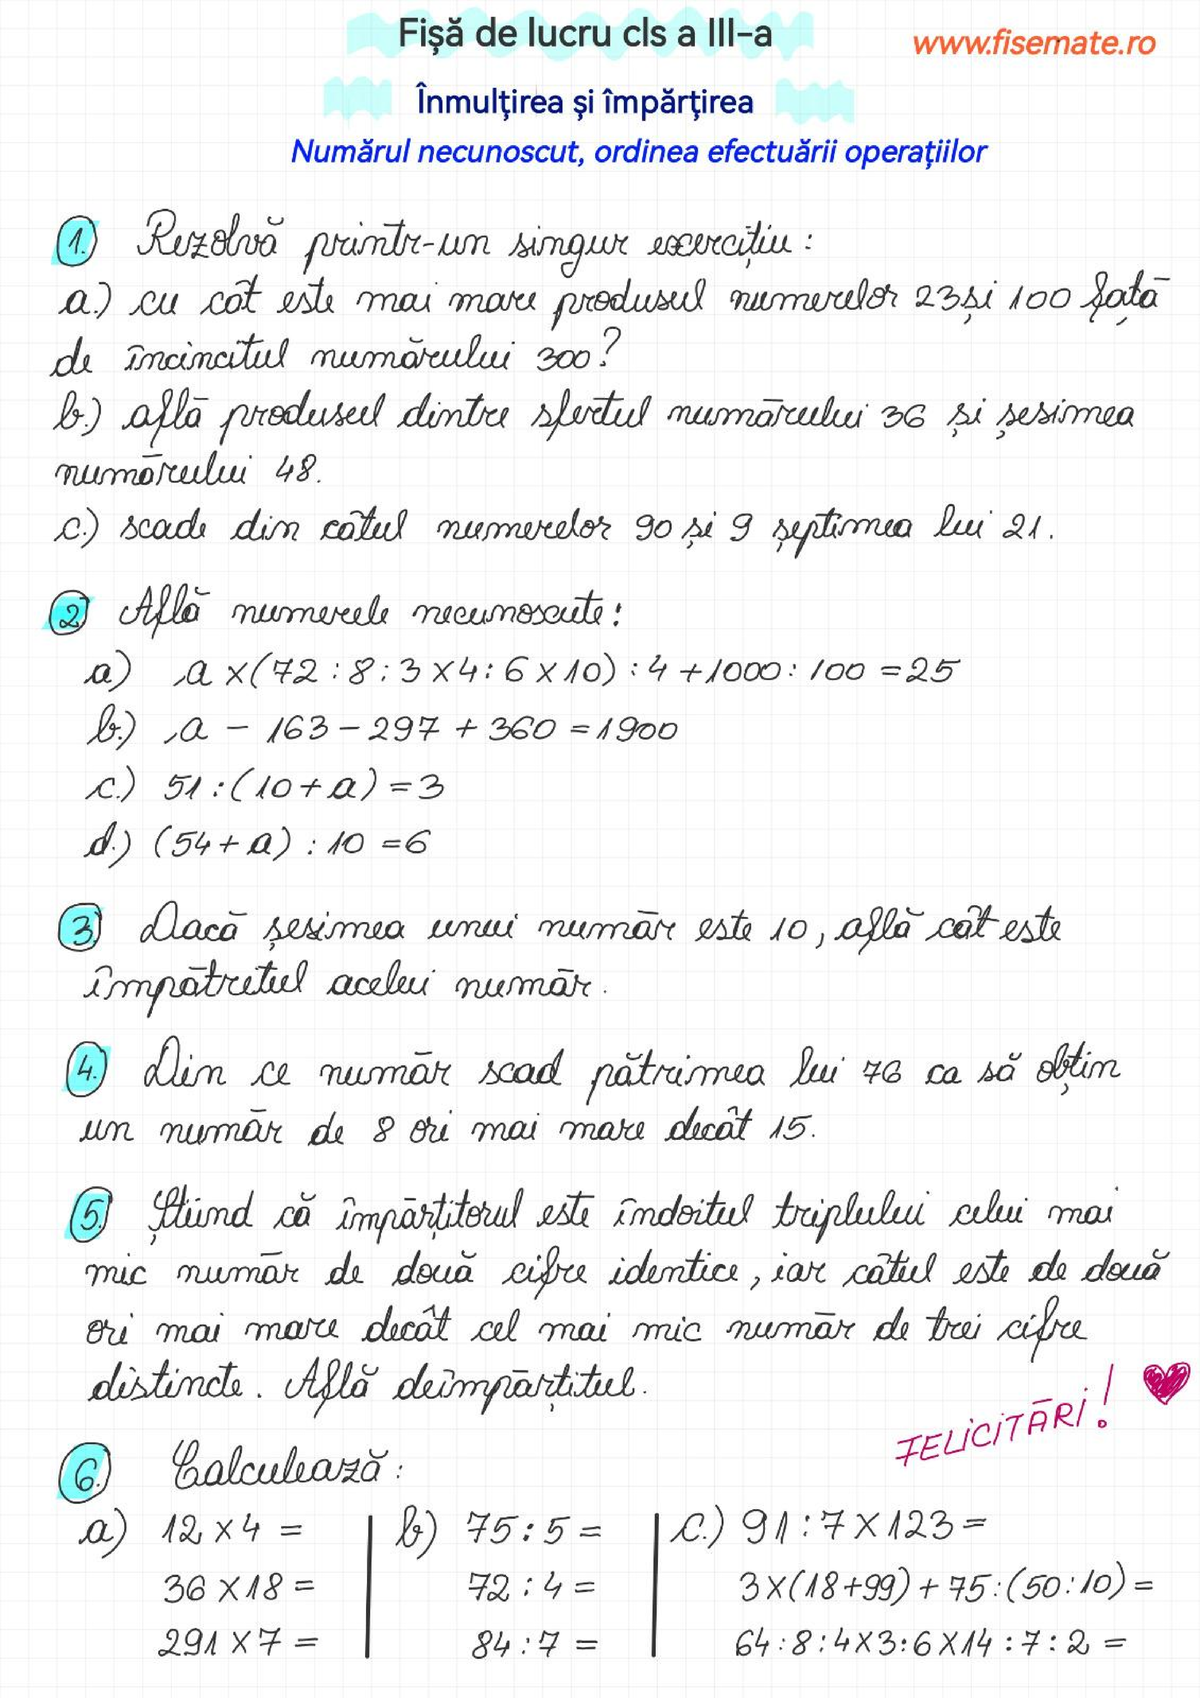 Fișă de lucru cls a III-a
www.fisemate.ro
Înmulțirea și împărțirea
Numărul necunoscut, ordinea efectuării operațiilor
1. Rezolvă printr-un singur exercițiu:
a.) cu cât este mai mare produsul numerelor 23 și 100 față
de încincitul numărului 300?
b.) află produsul dintre sfertul numărului 36 și șesimea
numărului 48.
c.) scade din câtul numerelor 90 și 9 șeptimea lui 21.
2. Află numerele necunoscute:
a) a x (72 : 8 : 3 x 4 : 6 x 10) : 4 + 1000 : 100 = 25
b.) a - 163 - 297 + 360 = 1900
c.) 51 : (10 + a) = 3
d.) (54 + a) : 10 = 6
3. Dacă șesimea unui număr este 10, află cât este
împătritul acelui număr.
4. Din ce număr scad pătrimea lui 76 ca să obțin
un număr de 8 ori mai mare decât 15.
5. Știind că împărțitorul este îndoitul triplului celui mai
mic număr de două cifre identice, iar câtul este de două
ori mai mare decât cel mai mic număr de trei cifre
distincte. Află deîmpărțitul.
FELICITĂRI!
6. Calculează:
a) 12 x 4 = b) 75 : 5 = c.) 91 : 7 x 123 =
36 x 18 = 72 : 4 = 3 x (18 + 99) + 75 : (50 : 10) =
291 x 7 = 84 : 7 = 64 : 8 : 4 x 3 : 6 x 14 : 7 : 2 =